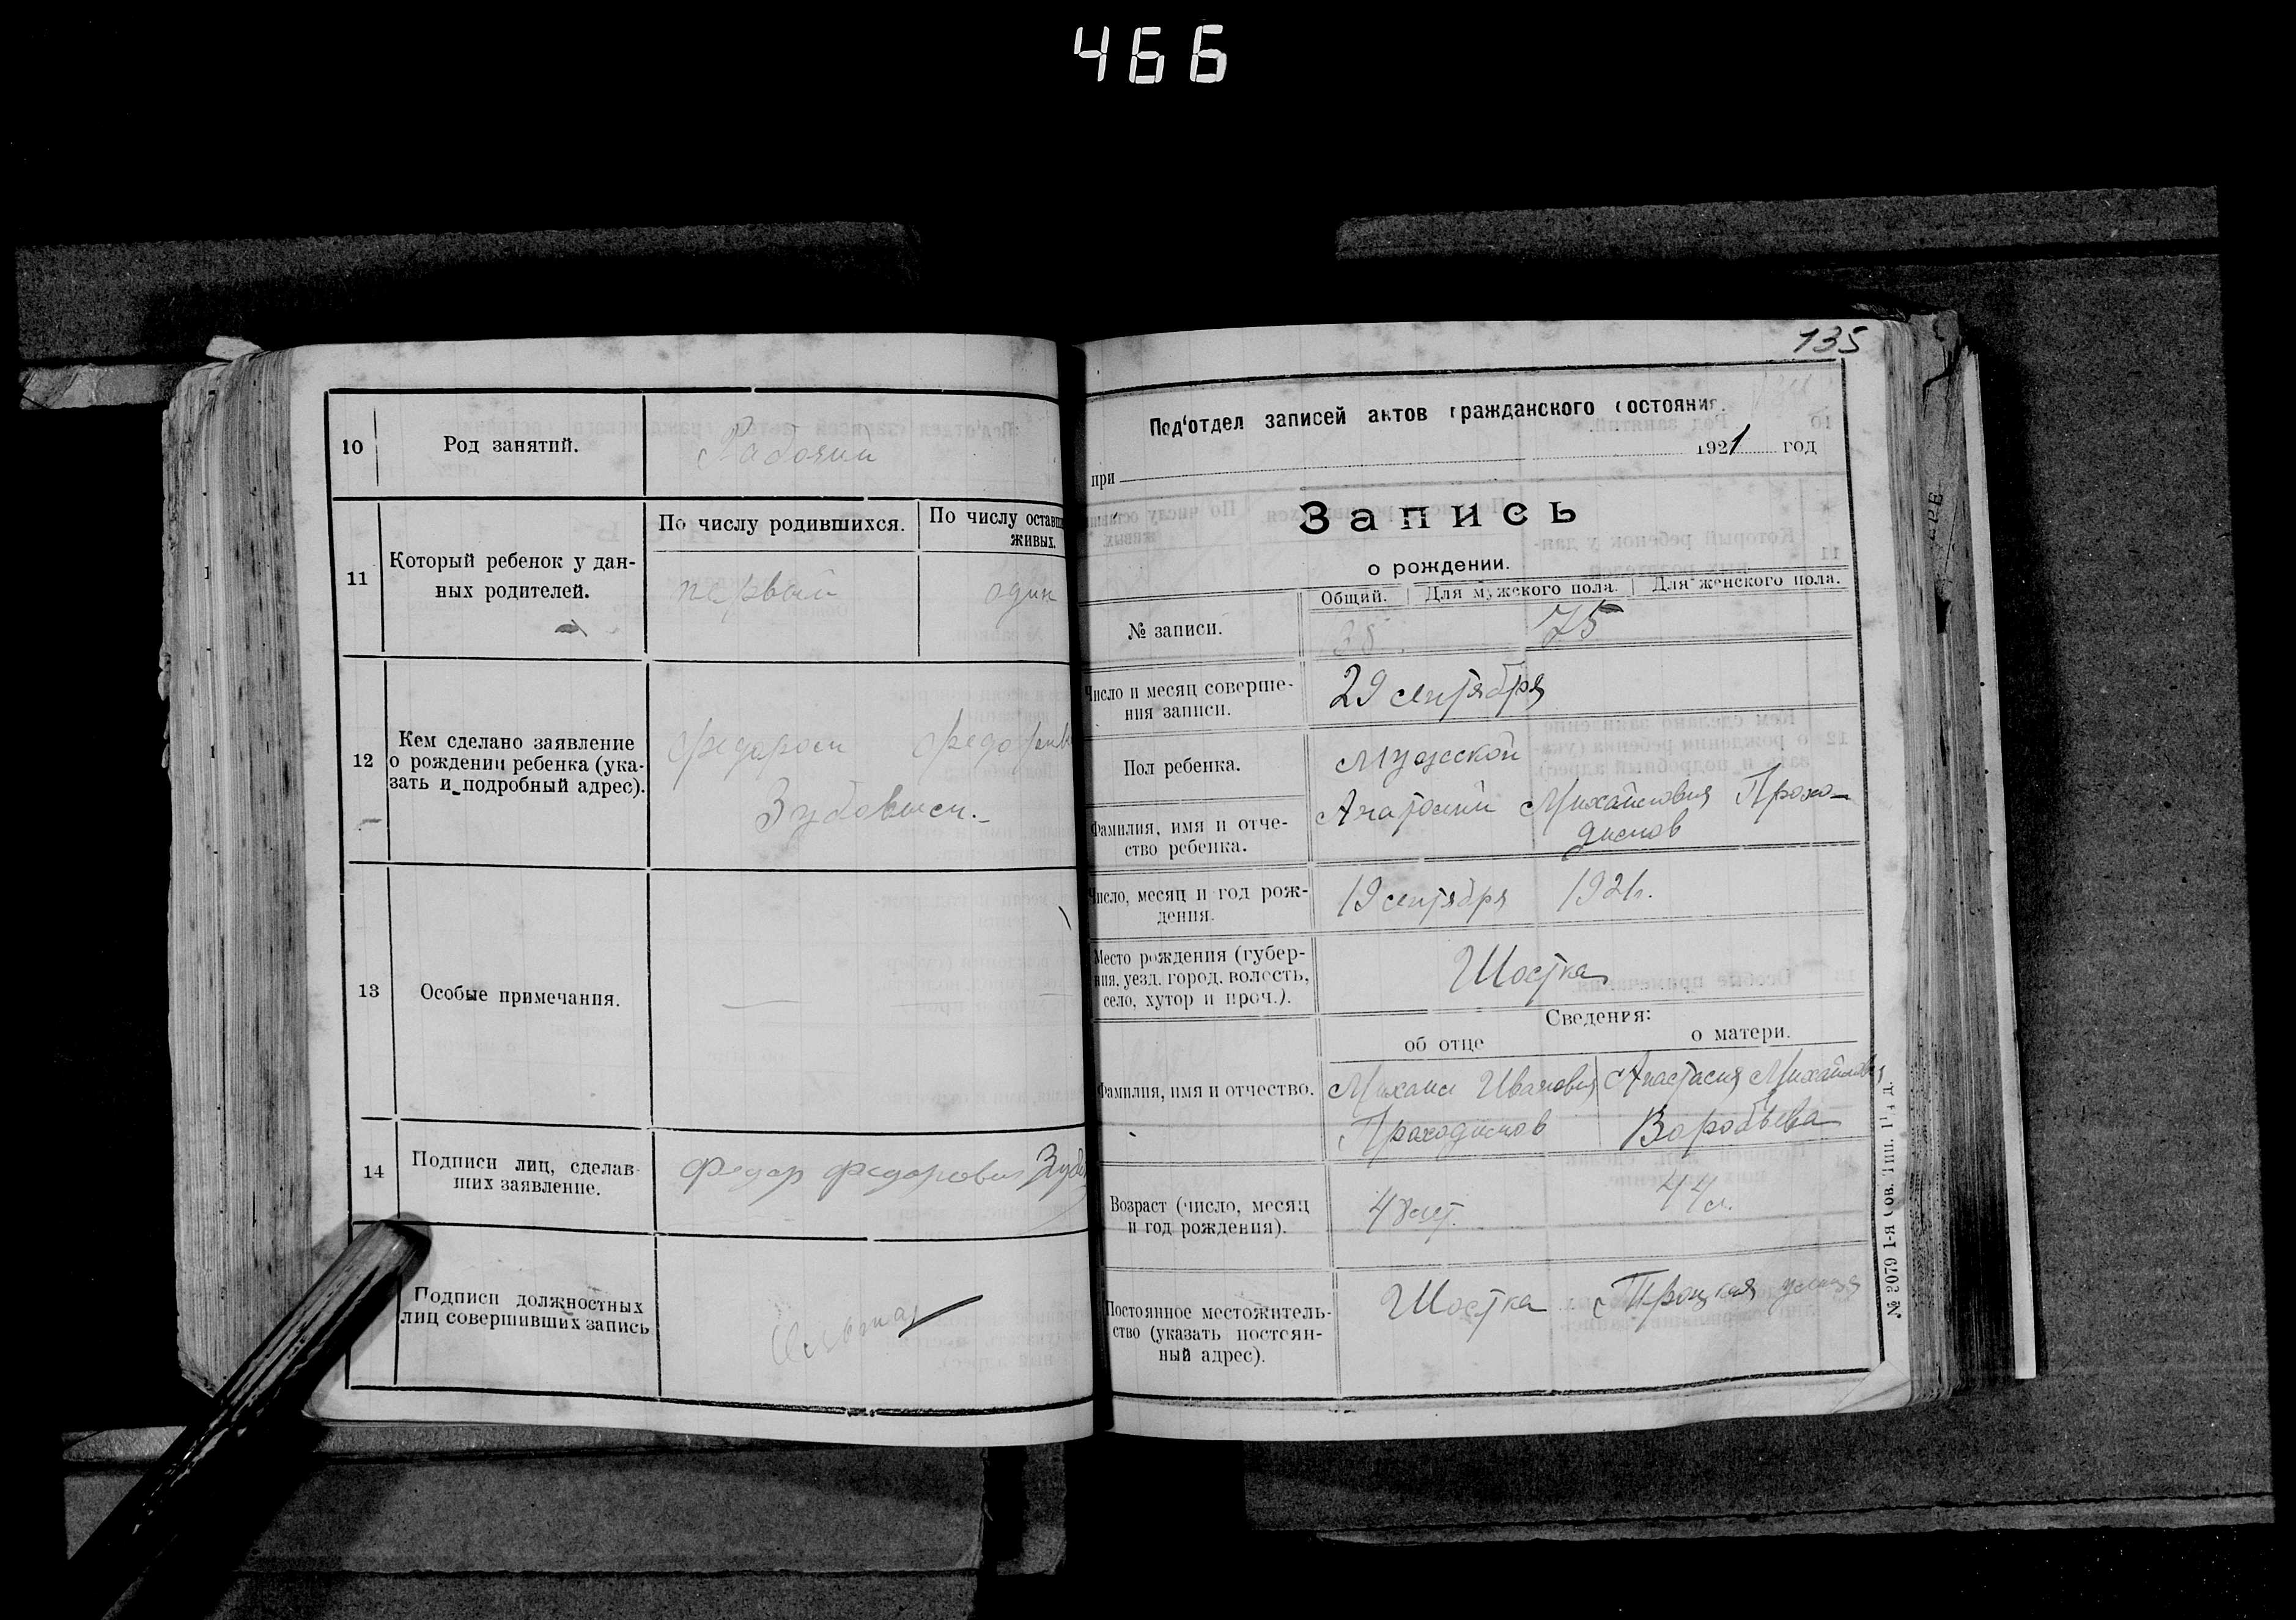 466
10
Род занятий.
Рабочий
11
Который ребенок у дан-
ных родителей.
По числу родившихся.
По числу оставш
живых.
первый
один
12
Кем сделано заявление
о рождении ребенка (ука-
зать и подробный адрес).
Федором
Зубовым.
13
Особые примечания.
14
Подписи лиц, сделав-
ших заявление.
Федор Федорович
Подписи должностных
лиц совершивших запись
135
Под'отдел записей актов гражданского состояния.
при 1921 год
Запись
о рождении.
Общий. Для мужского пола. Для женского пола.
№ записи.
75
Число и месяц соверше-
ния записи.
29 сентября
Пол ребенка.
Мужской
Фамилия, имя и отче-
ство ребенка.
Анатолий Михайлович Прохо-
Число, месяц и год рож-
дения.
19 сентября 1921г.
Место рождения (губер-
ния, уезд, город, волость,
село, хутор и проч.).
Шостка
Сведения:
об отце
о матери.
Фамилия, имя и отчество.
Михаил Иванович
Анастасия Михайлов
Воробьева
Возраст (число, месяц
и год рождения).
48 лет.
44 л.
Постоянное местожитель-
ство (указать постоян-
ный адрес).
Шостка улица
№ 2079 1-я Сов. Тип.